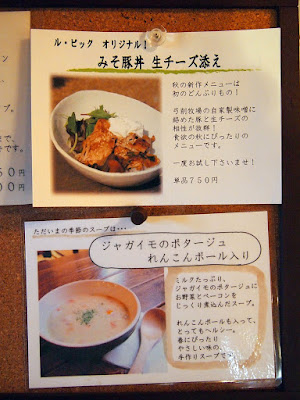 スープ。
で、
です。
０円
００円
ル・ピック オリジナル！
みそ豚丼 生チーズ添え
秋の新作メニューは
初のどんぶりもの！
弓削牧場の自家製味噌に
絡めた豚と生チーズの
相性が抜群！
食欲の秋にぴったりの
メニューです。
一度お試し下さいませ！
単品７５０円
ただいまの季節のスープは・・・
ジャガイモのポタージュ
れんこんボール入り
ミルクたっぷり、
ジャガイモのポタージュに
お野菜とベーコンを
じっくり煮込んだスープ。
れんこんボールも入って、
とってもヘルシー。
春にぴったり
やさしい味の、
手作りスープです